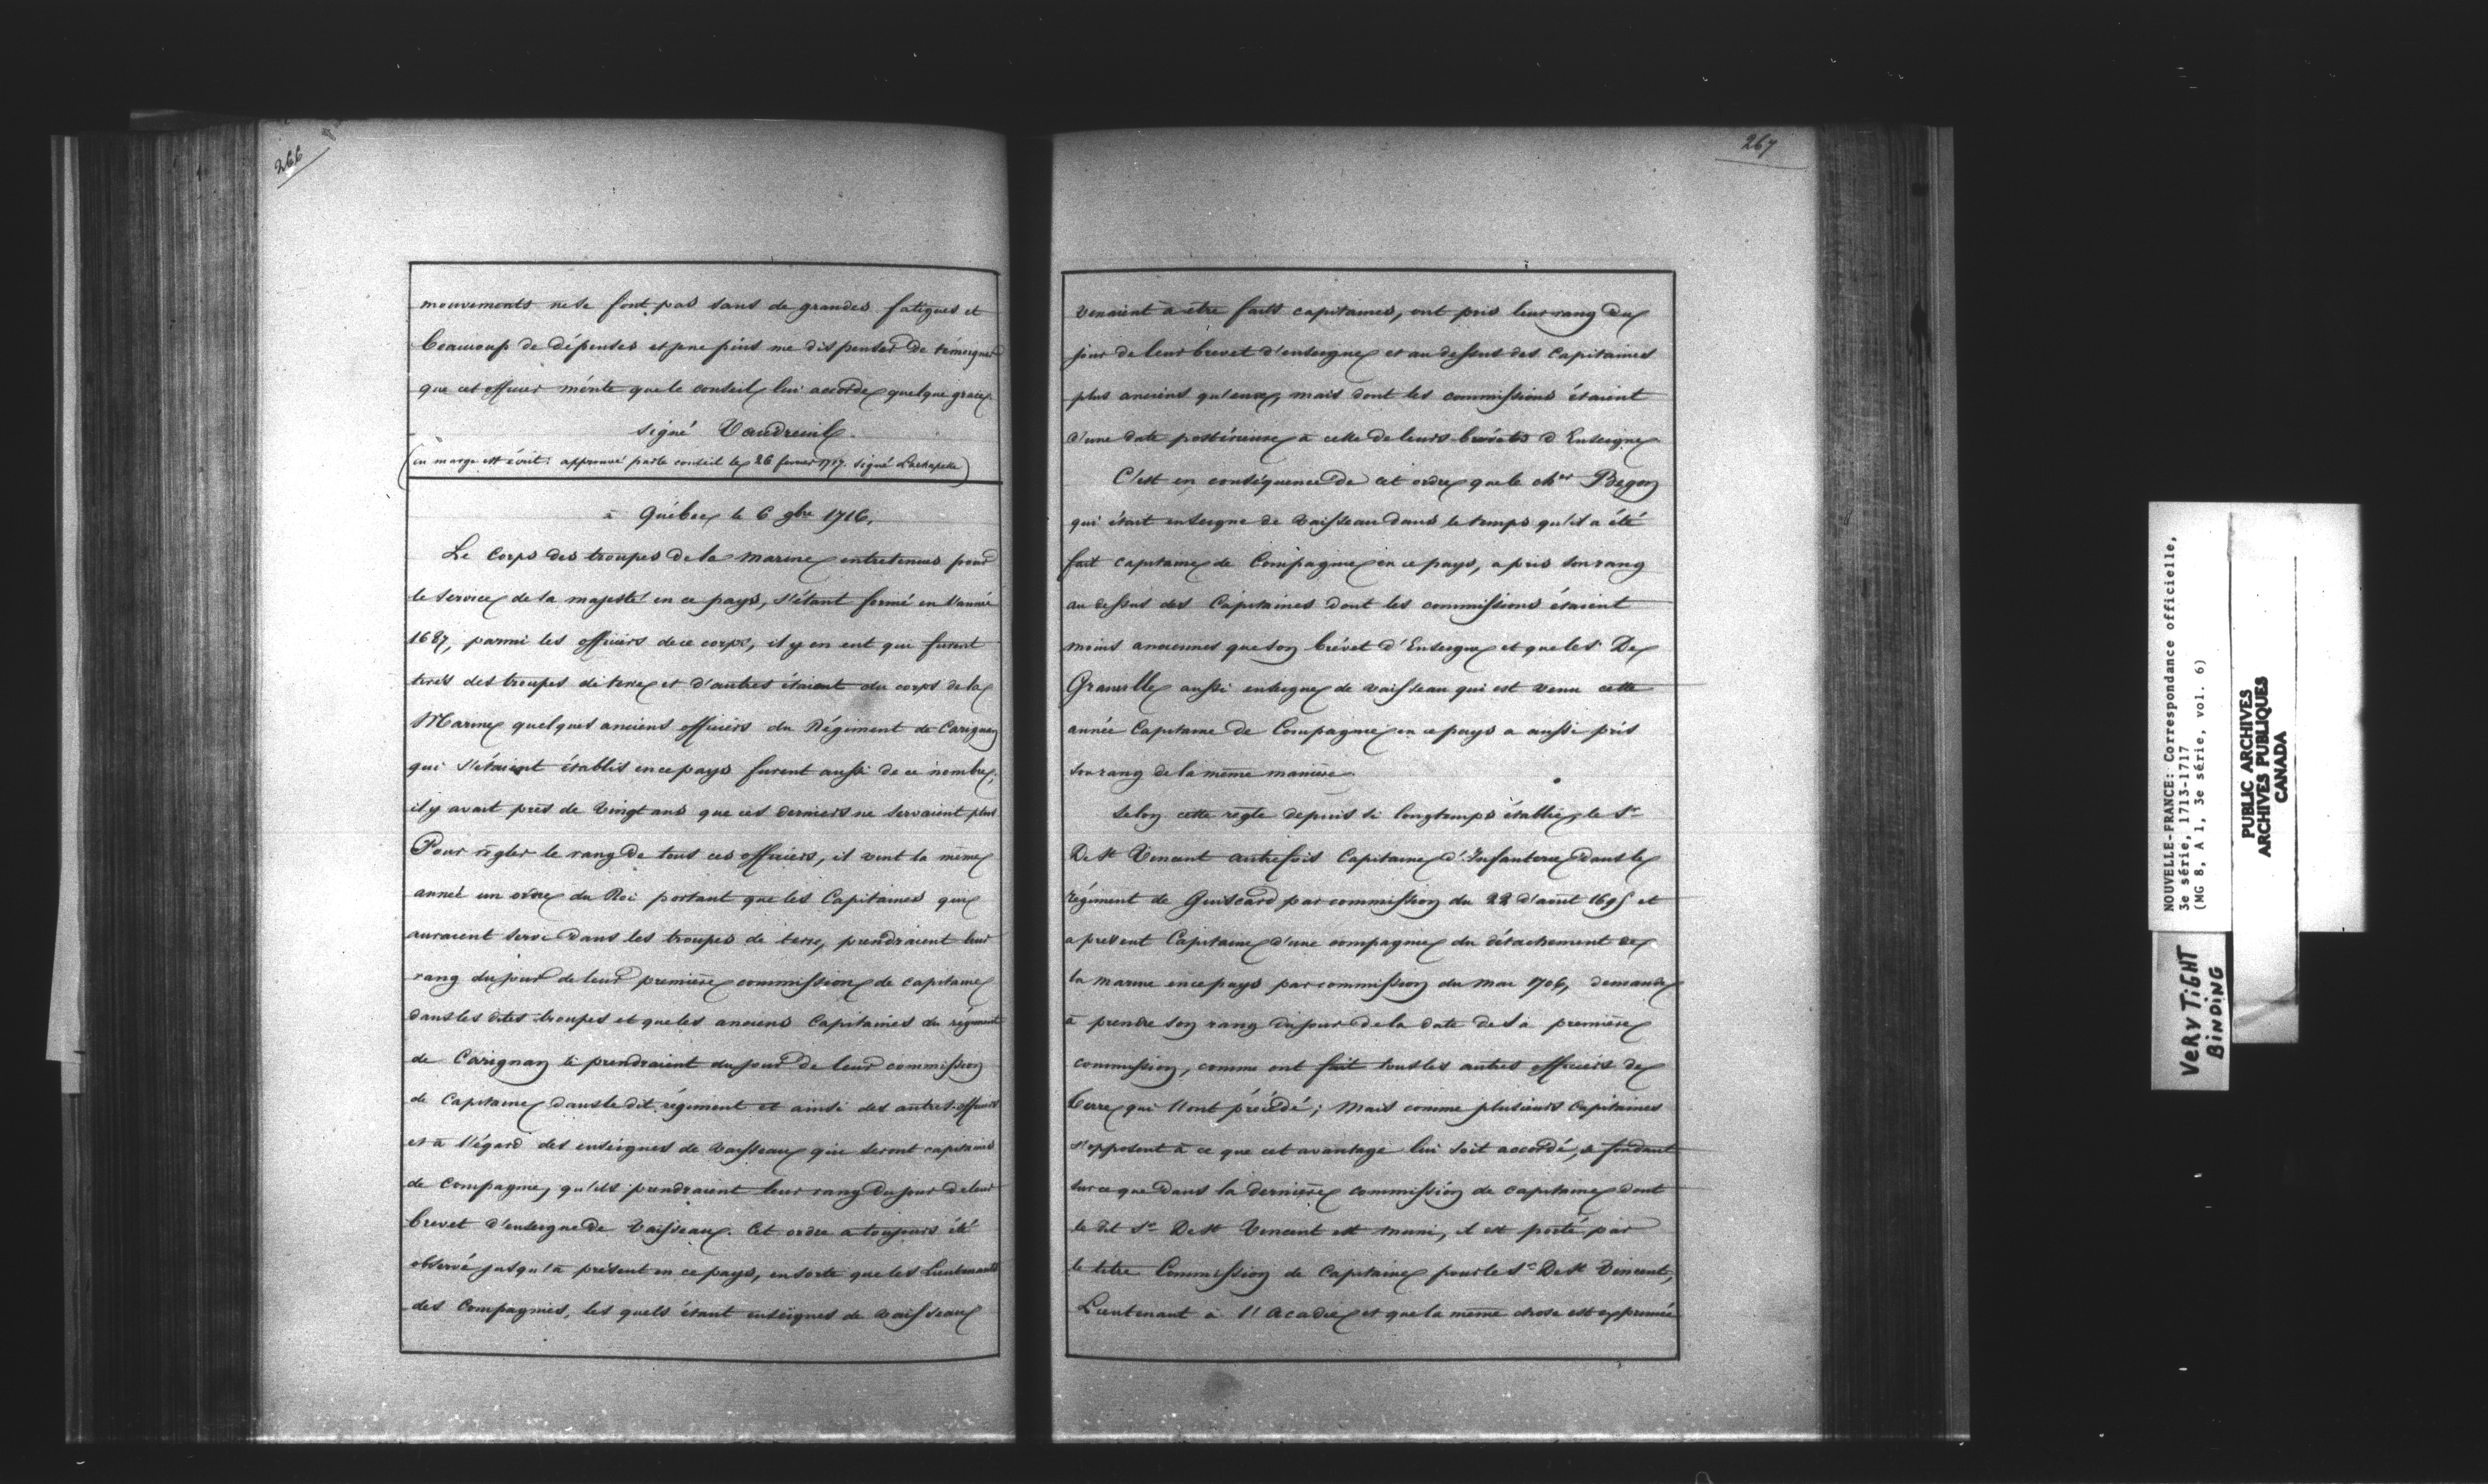 266
mouvements ne se font pas sans de grandes fatigues et
beaucoup de dépenses et je ne puis me dispenser de témoigner
que cet officier mérite que le conseil lui accorde quelque grace
signé Vaudreuil.
(en marge est écrit: approuvé par le conseil le 26 fevrier 1717. signé Lachapelle)
à Québec le 6 9bre 1716.
Le Corps des troupes de la marine entretenues pour
le service de sa majesté en ce pays, s'étant formé en l'année
1687, parmi les officiers de ce corps, il y en eut qui furent
tirés des troupes de terre et d'autres étaient du corps de la
Marine quelques anciens officiers du Régiment de Carignan
qui s'étaient établis en ce pays furent aussi de ce nombre;
il y avait près de vingt ans que ces derniers ne servaient plus
Pour règler le rang de tous ces officiers, il vint la même
année un ordre du Roi portant que les Capitaines qui
auraient servi dans les troupes de terre, prendraient leur
rang du jour de leur première commission de capitaine
dans les dites troupes et que les anciens Capitaines du régiment
de Carignan le prendraient du jour de leur commission
de Capitaine dans le dit régiment et ainsi des autres officiers
et à l'égard des enseignes de vaisseaux qui seront capitaines
de Compagnie, qu'ils prendraient leur rang du jour de leur
brevet d'enseigne de vaisseaux. Cet ordre a toujours été
observé jusqu'à présent en ce pays, en sorte que les Lieutenants
des Compagnies, les quels étant enseignes de vaisseaux
267
venaient à être faits capitaines, ont pris leur rang du
jour de leur brevet d'enseigne et au dessus des Capitaines
plus anciens qu'eux, mais dont les commissions étaient
d'une date postérieure à celle de leurs brevets d'Enseigne
C'est en conséquence de cet ordre que le cher Begon
qui était enseigne de vaisseau dans le temps qu'il a été
fait capitaine de Compagnie en ce pays, a pris son rang
au dessus des Capitaines dont les commissions étaient
moins anciennes que son brévet d'Enseigne et que le Sr De
Granville aussi enseigne de vaisseau qui est venu cette
année Capitaine de Compagnie en ce pays a aussi pris
son rang de la même manière.
Selon cette règle depuis si longtemps établie, le Sr
De St Vincent autrefois Capitaine d'Infanterie dans le
régiment de Guiscard par commission du 22 d'aout 1695 et
a present Capitaine d'une compagnie du détachement de
la marine en ce pays par commission du mai 1706, demande
à prendre son rang du jour de la date de sa première
commission, comme ont fait tous les autres officiers de
terre qui l'ont précédé; Mais comme plusieurs Capitaines
s'opposent à ce que cet avantage lui soit accordé, se fondant
sur ce que dans la dernière commission de capitaine dont
le dit Sr De St Vincent est muni, il est porté par
le titre Commission de Capitaine pour le Sr De St Vincent,
Lieutenant à l'Acadie et que la même chose est exprimée
NOUVELLE-FRANCE: Correspondance officielle,
3e série, 1713-1717
(MG 8, A 1, 3e série, vol. 6)
PUBLIC ARCHIVES
ARCHIVES PUBLIQUES
CANADA
VERY TIGHT
BINDING